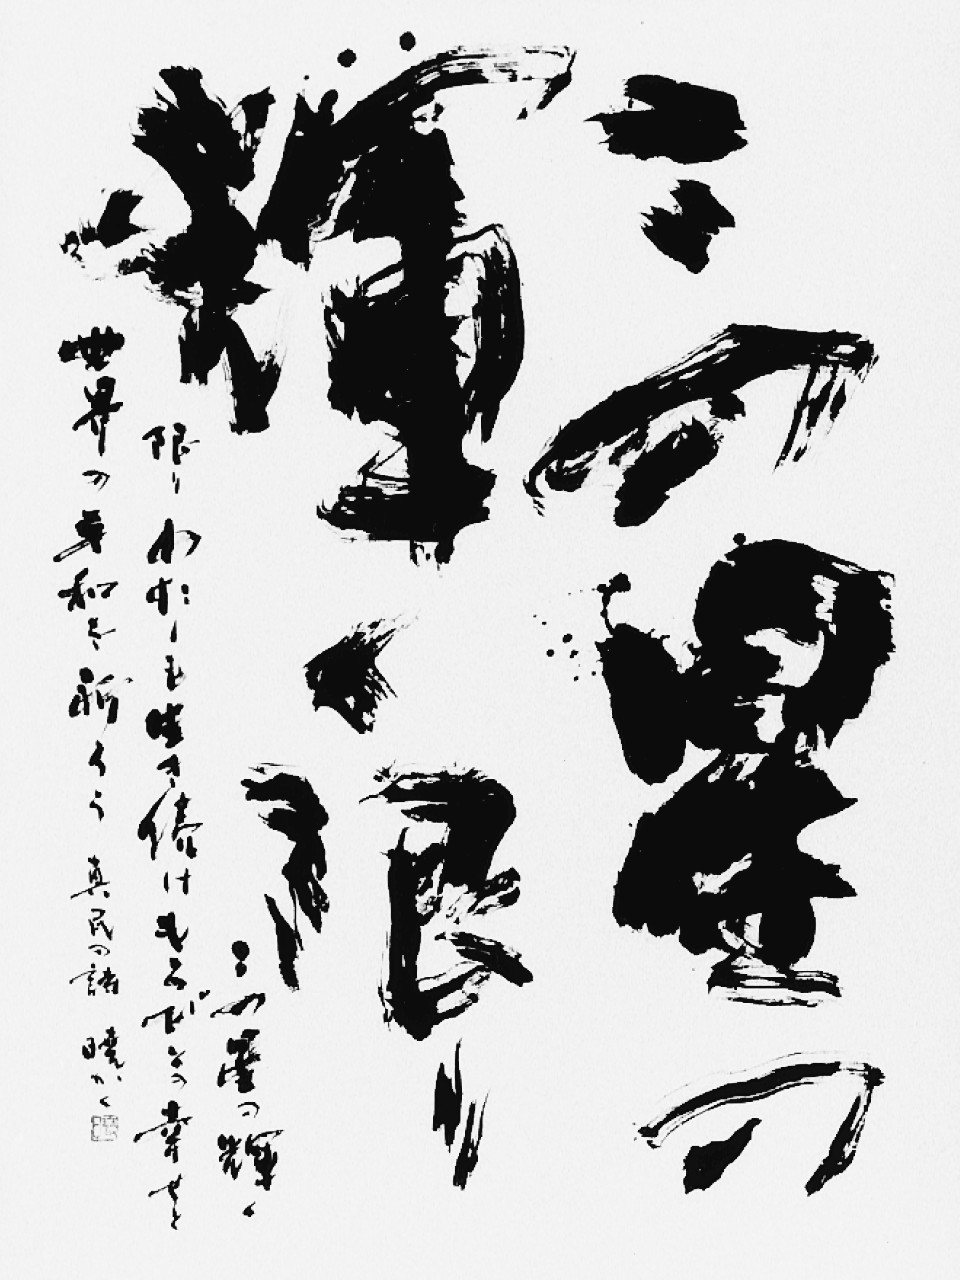 この星の
輝く限り
この星の輝く
限りわたしも生き続けもろびとの幸せと
世界の平和を祈ろう 真民の詩 暁かく